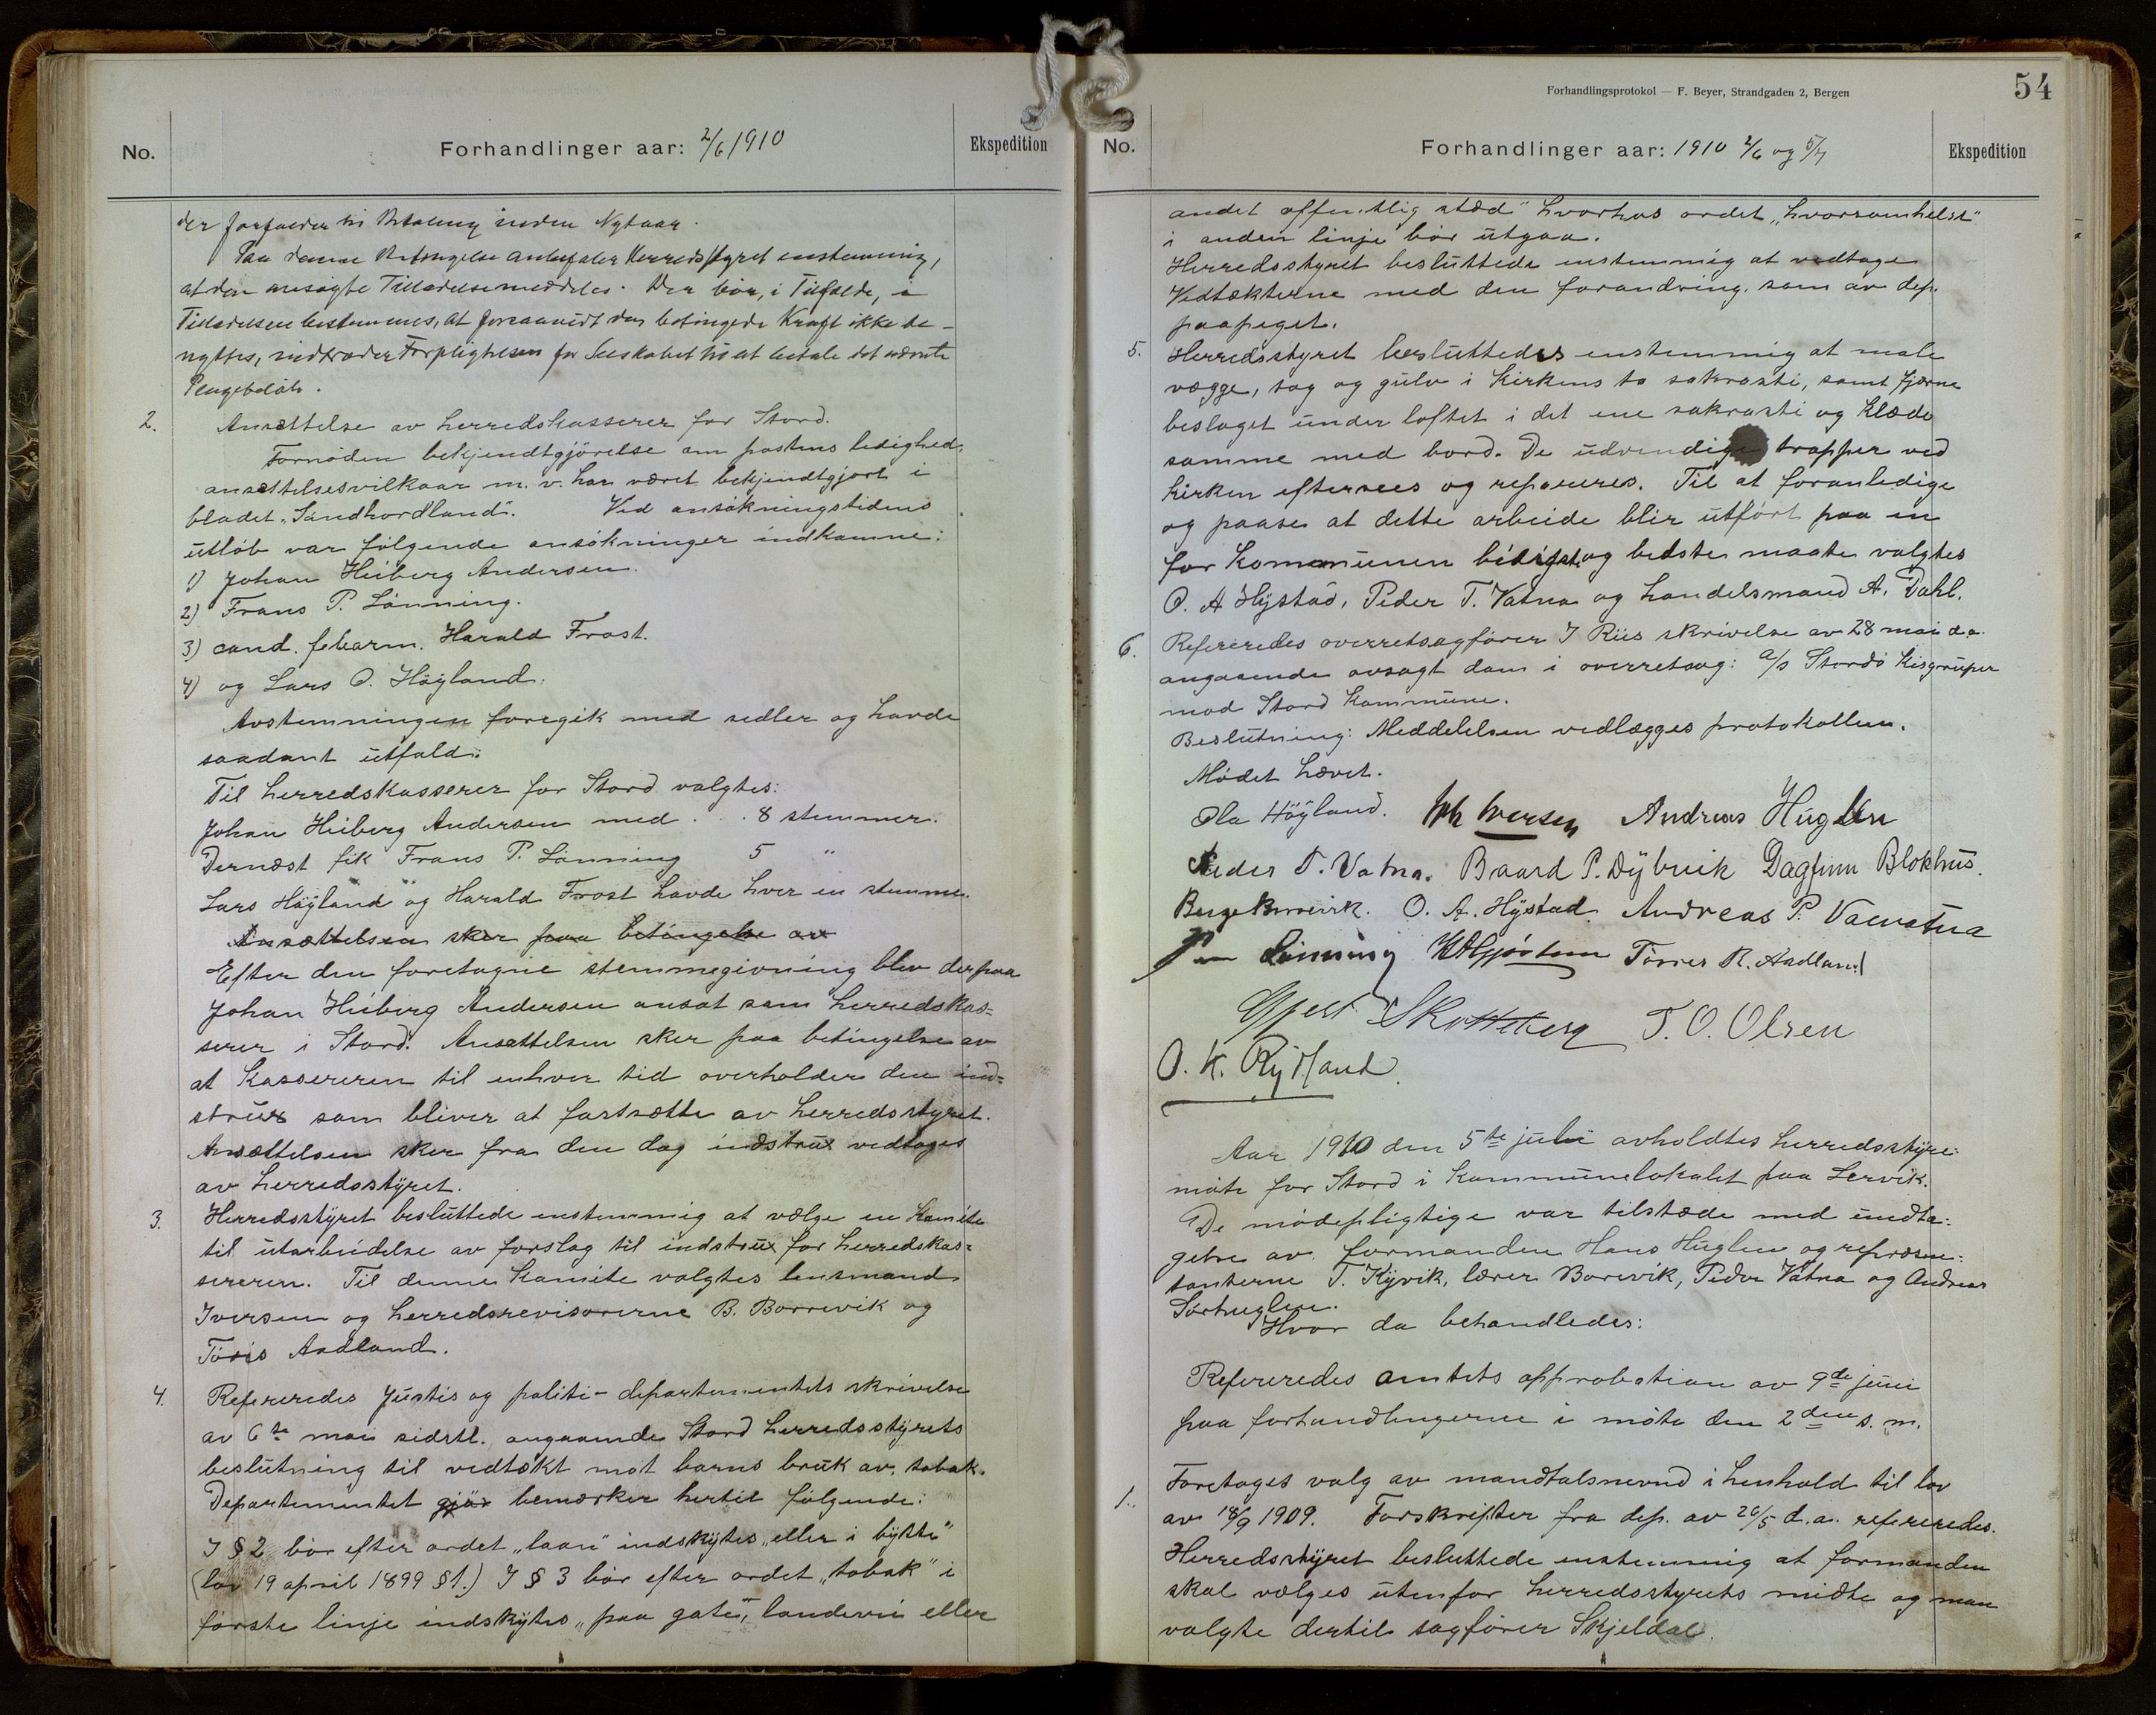 No.
Forhandlinger aar: 2/6 1910
Ekspedition
der forfalder til Betaling inden Nytaar.
Paa denne Betingelse anbefaler Herredsstyret enstemmig,
at den ansøgte Tilladelse meddeles. Der bør, i Tilfælde, i
Tilladelsen bestemmes, at forsaavidt den betingede Kraft ikke be-
nyttes, indtræder Forpligtelsen for Selskabet til at betale det nævnte
Pengebeløb.
2. Ansættelse av herredskasserer for Stord.
Fornöden bekjendtgjörelse om postens ledighed,
ansættelsesvilkaar m. v. har været bekjendtgjort i
bladet „Sundhordland". Ved ansökningstidens
utlöb var fölgende ansökninger indkomne:
1) Johan Heiberg Andersen.
2) Frans P. Lönning.
3) cand. pharm. Harald Frost.
4) og Lars O. Höyland.
Avstemningen foregik med sedler og havde
saadant utfald:
Til herredskasserer for Stord valgtes:
Johan Heiberg Andersen med . . . 8 stemmer.
Dernæst fik Frans P. Lönning 5 "
Lars Höyland og Harald Frost havde hver en stemme.
Ansættelsen sker paa betingelse av
Efter den foretagne stemmegivning blev derpaa
Johan Heiberg Andersen ansat som herredskas=
serer i Stord. Ansættelsen sker paa betingelse av
at kassereren til enhver tid overholder den ind=
strux som bliver at fastsætte av herredsstyret.
Ansættelsen sker fra den dag indstrux vedtages
av herredsstyret.
3. Herredsstyret besluttede enstemmig at vælge en komite
til utarbeidelse av forslag til indstrux for herredskas=
sereren. Til denne komite valgtes lensmand
Iversen og herredsrevisorerne B. Borrevik og
Töris Aadland.
4. Refereredes Justis og politi-departementets skrivelse
av 6te mai sidstl. angaaende Stord herredsstyrets
beslutning til vedtækt mot barns bruk av tobak.
Departementet gjör bemærker hertil fölgende:
I § 2 bör efter ordet „laan" indskytes „eller i bytte"
(lov 19 april 1899 § 1.) I § 3 bör efter ordet „tobak" i
förste linje indskytes „paa gate, landevei eller
Forhandlingsprotokol — F. Beyer, Strandgaden 2, Bergen
54
No.
Forhandlinger aar: 1910 2/6 og 5/7
Ekspedition
andet offentlig sted" hvorhos ordet „hvorsomhelst"
i anden linje bör utgaa.
Herredsstyret besluttede enstemmig at vedtage
Vedtækterne med den forandring som av dep.
paapeget.
5. Herredsstyret besluttedes enstemmig at male
vægge, tag og gulv i kirkens to sakrasti, samt fjærne
beslaget under loftet i det ene sakrasti og klæde
samme med bord. De udvendige trapper ved
kirken eftersees og repareres. Til at foranledige
og paase at dette arbeide blir utfört paa en
for kommunen billigst og bedste maate valgtes
O. A Hystad, Peder T. Vatna og handelsmand A. Dahl.
6. Refereredes overretsagförer I Riis skrivelse av 28 mai d.a.
angaaende avsagt dom i overretsag: a/s Stordö Kisgruper
mod Stord kommune.
Beslutning: Meddelelsen vedlægges protokollen.
Mödet hævet.
Ola Höyland. Joh Iversen Andreas Huglen
Peder T. Vatna. Baard P. Dybvik Dagfinn Blokhus.
Berge Borrevik. O. A. Hystad Andreas P. Valvatna
Lönning Törres R. Aadland
Gjert Skottberg T. O. Olsen
O. K. Rydland
Aar 1910 den 5te juli avholdtes herredsstyre=
möte for Stord i kommunelokalet paa Lervik.
De mödepligtige var tilstæde med undta=
gelse av formanden Hans Huglen og repræsen=
tanterne T. Kyvik, lærer Borevik, Peder Vatna og Andreas
Sörhuglen.
Hvor da behandledes:
Refereredes amtets approbation av 9de juni
paa forhandlingerne i möte den 2den s. m.
1. Foretages valg av mandtalsnevnd i henhold til lov
av 18/9 1909. Forskrifter fra dep. av 26/5 d.a. refereredes.
Herredsstyret besluttede enstemmig at formanden
skal vælges utenfor herredsstyrets midte og man
valgte dertil sagförer Skjeldal.